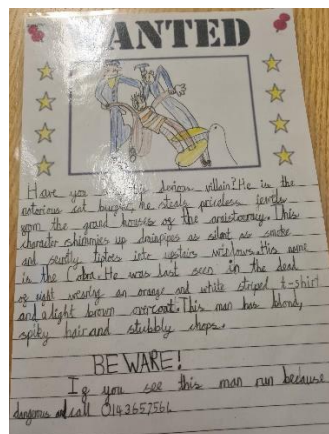 WANTED
Have you this devious villain? He is the
notorious cat burglar, he steals priceless jewels
from the grand houses of the aristocracy. This
character shimmies up drainpipes as silent as smoke
and tiptoes into upstairs windows. His name
is the Cobra. He was last seen in the dead
of night wearing an orange and white striped t-shirt
and a light brown overcoat. This man has blond,
spiky hair and stubbly chops.
BEWARE!
If you see this man run because
dangerous and call